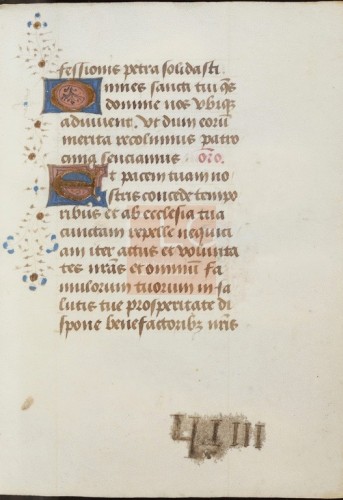 fessionis petra solidasti
Omnes sancti tui q̄s
domine nos vbiq̄
adiuuent. Vt dum eorū
merita recolimus patro
cinia senciamus oro.
Et pacem tuam no
stris concede tempo
ribus et ab ecclesia tua
cunctam repelle nequici
am iter actus et volunta
tes nr̄as et omniū fa
mulorum tuorum in sa
lutis tue prosperitate di
spone benefactoribꝫ nr̄is